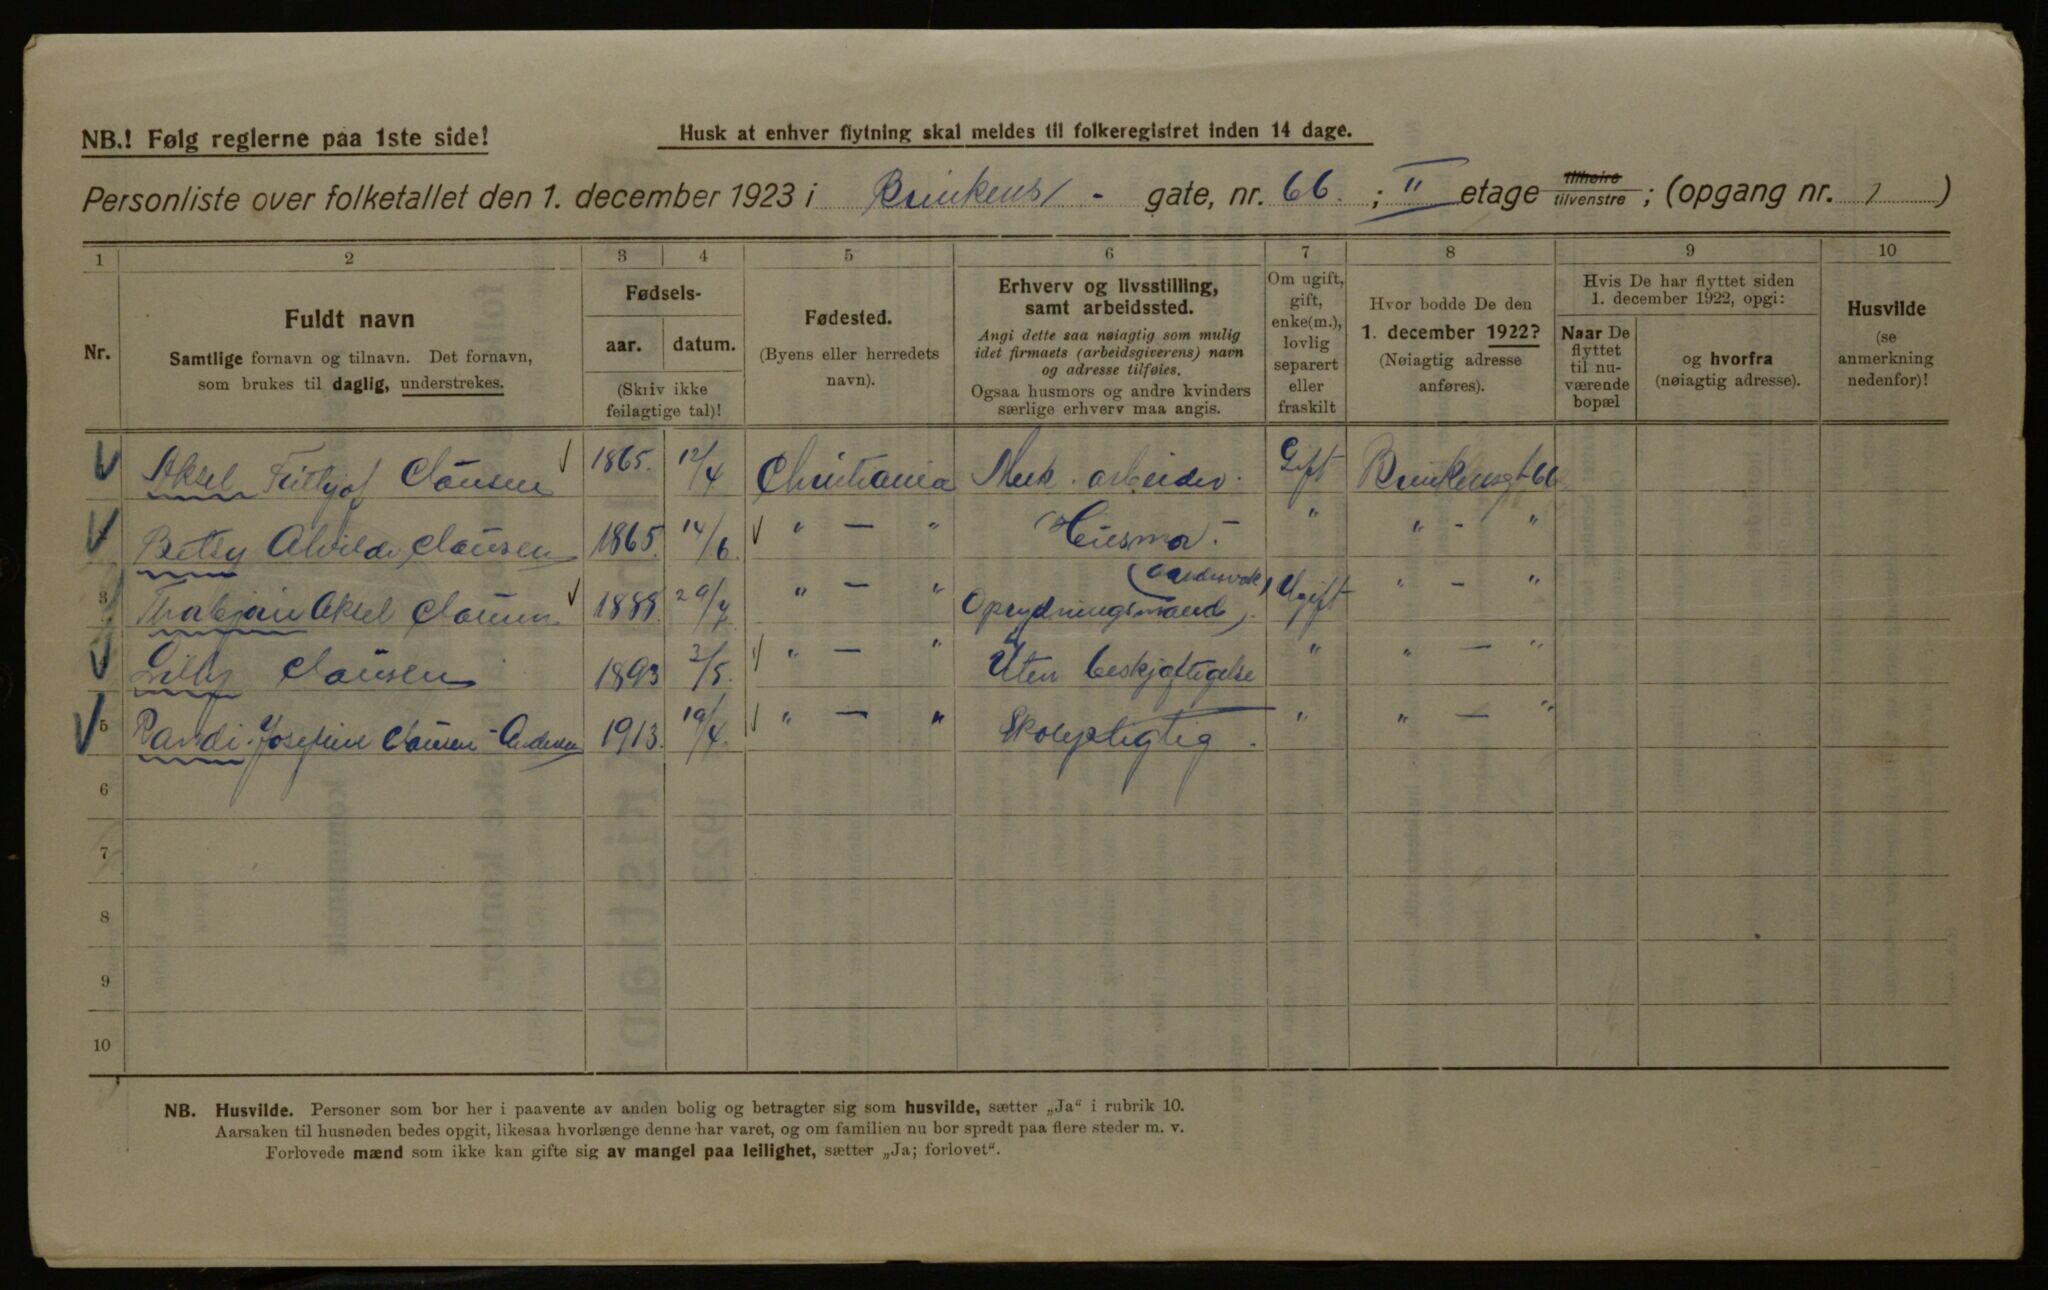 NB.! Følg reglerne paa 1ste side!
Husk at enhver flytning skal meldes til folkeregistret inden 14 dage.
Personliste over folketallet den 1. december 1923 i Brinkens - gate, nr. 66. ; II etage tilhøire tilvenstre ; (opgang nr. 1 )
1 2 3 4 5 6 7 8 9 10
Nr.
Fuldt navn
Samtlige fornavn og tilnavn. Det fornavn,
som brukes til daglig, understrekes.
Fødsels-
aar. datum.
(Skriv ikke
feilagtige tal)!
Fødested.
(Byens eller herredets
navn).
Erhverv og livsstilling,
samt arbeidssted.
Angi dette saa nøiagtig som mulig
idet firmaets (arbeidsgiverens) navn
og adresse tilføies.
Ogsaa husmors og andre kvinders
særlige erhverv maa angis.
Om ugift,
gift,
enke(m.),
lovlig
separert
eller
fraskilt
Hvor bodde De den
1. december 1922?
(Nøiagtig adresse
anføres).
Hvis De har flyttet siden
1. december 1922, opgi:
Naar De
flyttet
til nu-
værende
bopæl
og hvorfra
(nøiagtig adresse).
Husvilde
(se
anmerkning
nedenfor)!
Aksel Frithjof Clausen 1865. 12/4 Christiania Mek. arbeider. Gift Brinkensgt 66
Betsy Alvilde Clausen 1865. 14/6. " — " Husmor. — " " - "
3 Thorbjørn Aksel Clausen 1888. 29/7 " — " Oprydningsmand. Ugift " - "
Lilly Clausen 1893 3/5. " — " Uten beskjæftigelse " " — "
5 Randi Josefine Clausen - Andersen 1913. 19/4. " — " Skolepligtig. " " — "
6
7
8
9
10
NB. Husvilde. Personer som bor her i paavente av anden bolig og betragter sig som husvilde, sætter „Ja“ i rubrik 10.
Aarsaken til husnøden bedes opgit, likesaa hvorlænge denne har varet, og om familien nu bor spredt paa flere steder m. v.
Forlovede mænd som ikke kan gifte sig av mangel paa leilighet, sætter „Ja; forlovet“.